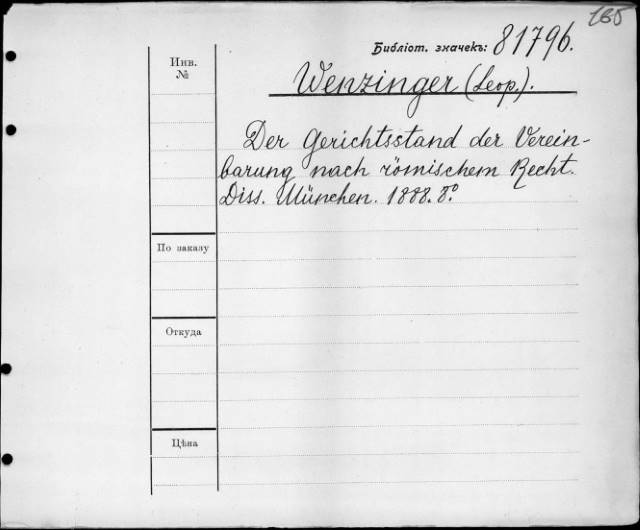 165
Библіот. значекъ: 81796.
Инв.
№
Wenzinger (Leop.).
Der Gerichtsstand der Verein-
barung nach römischem Recht.
Diss. München. 1888. 8°
По заказу
Откуда
Цѣна